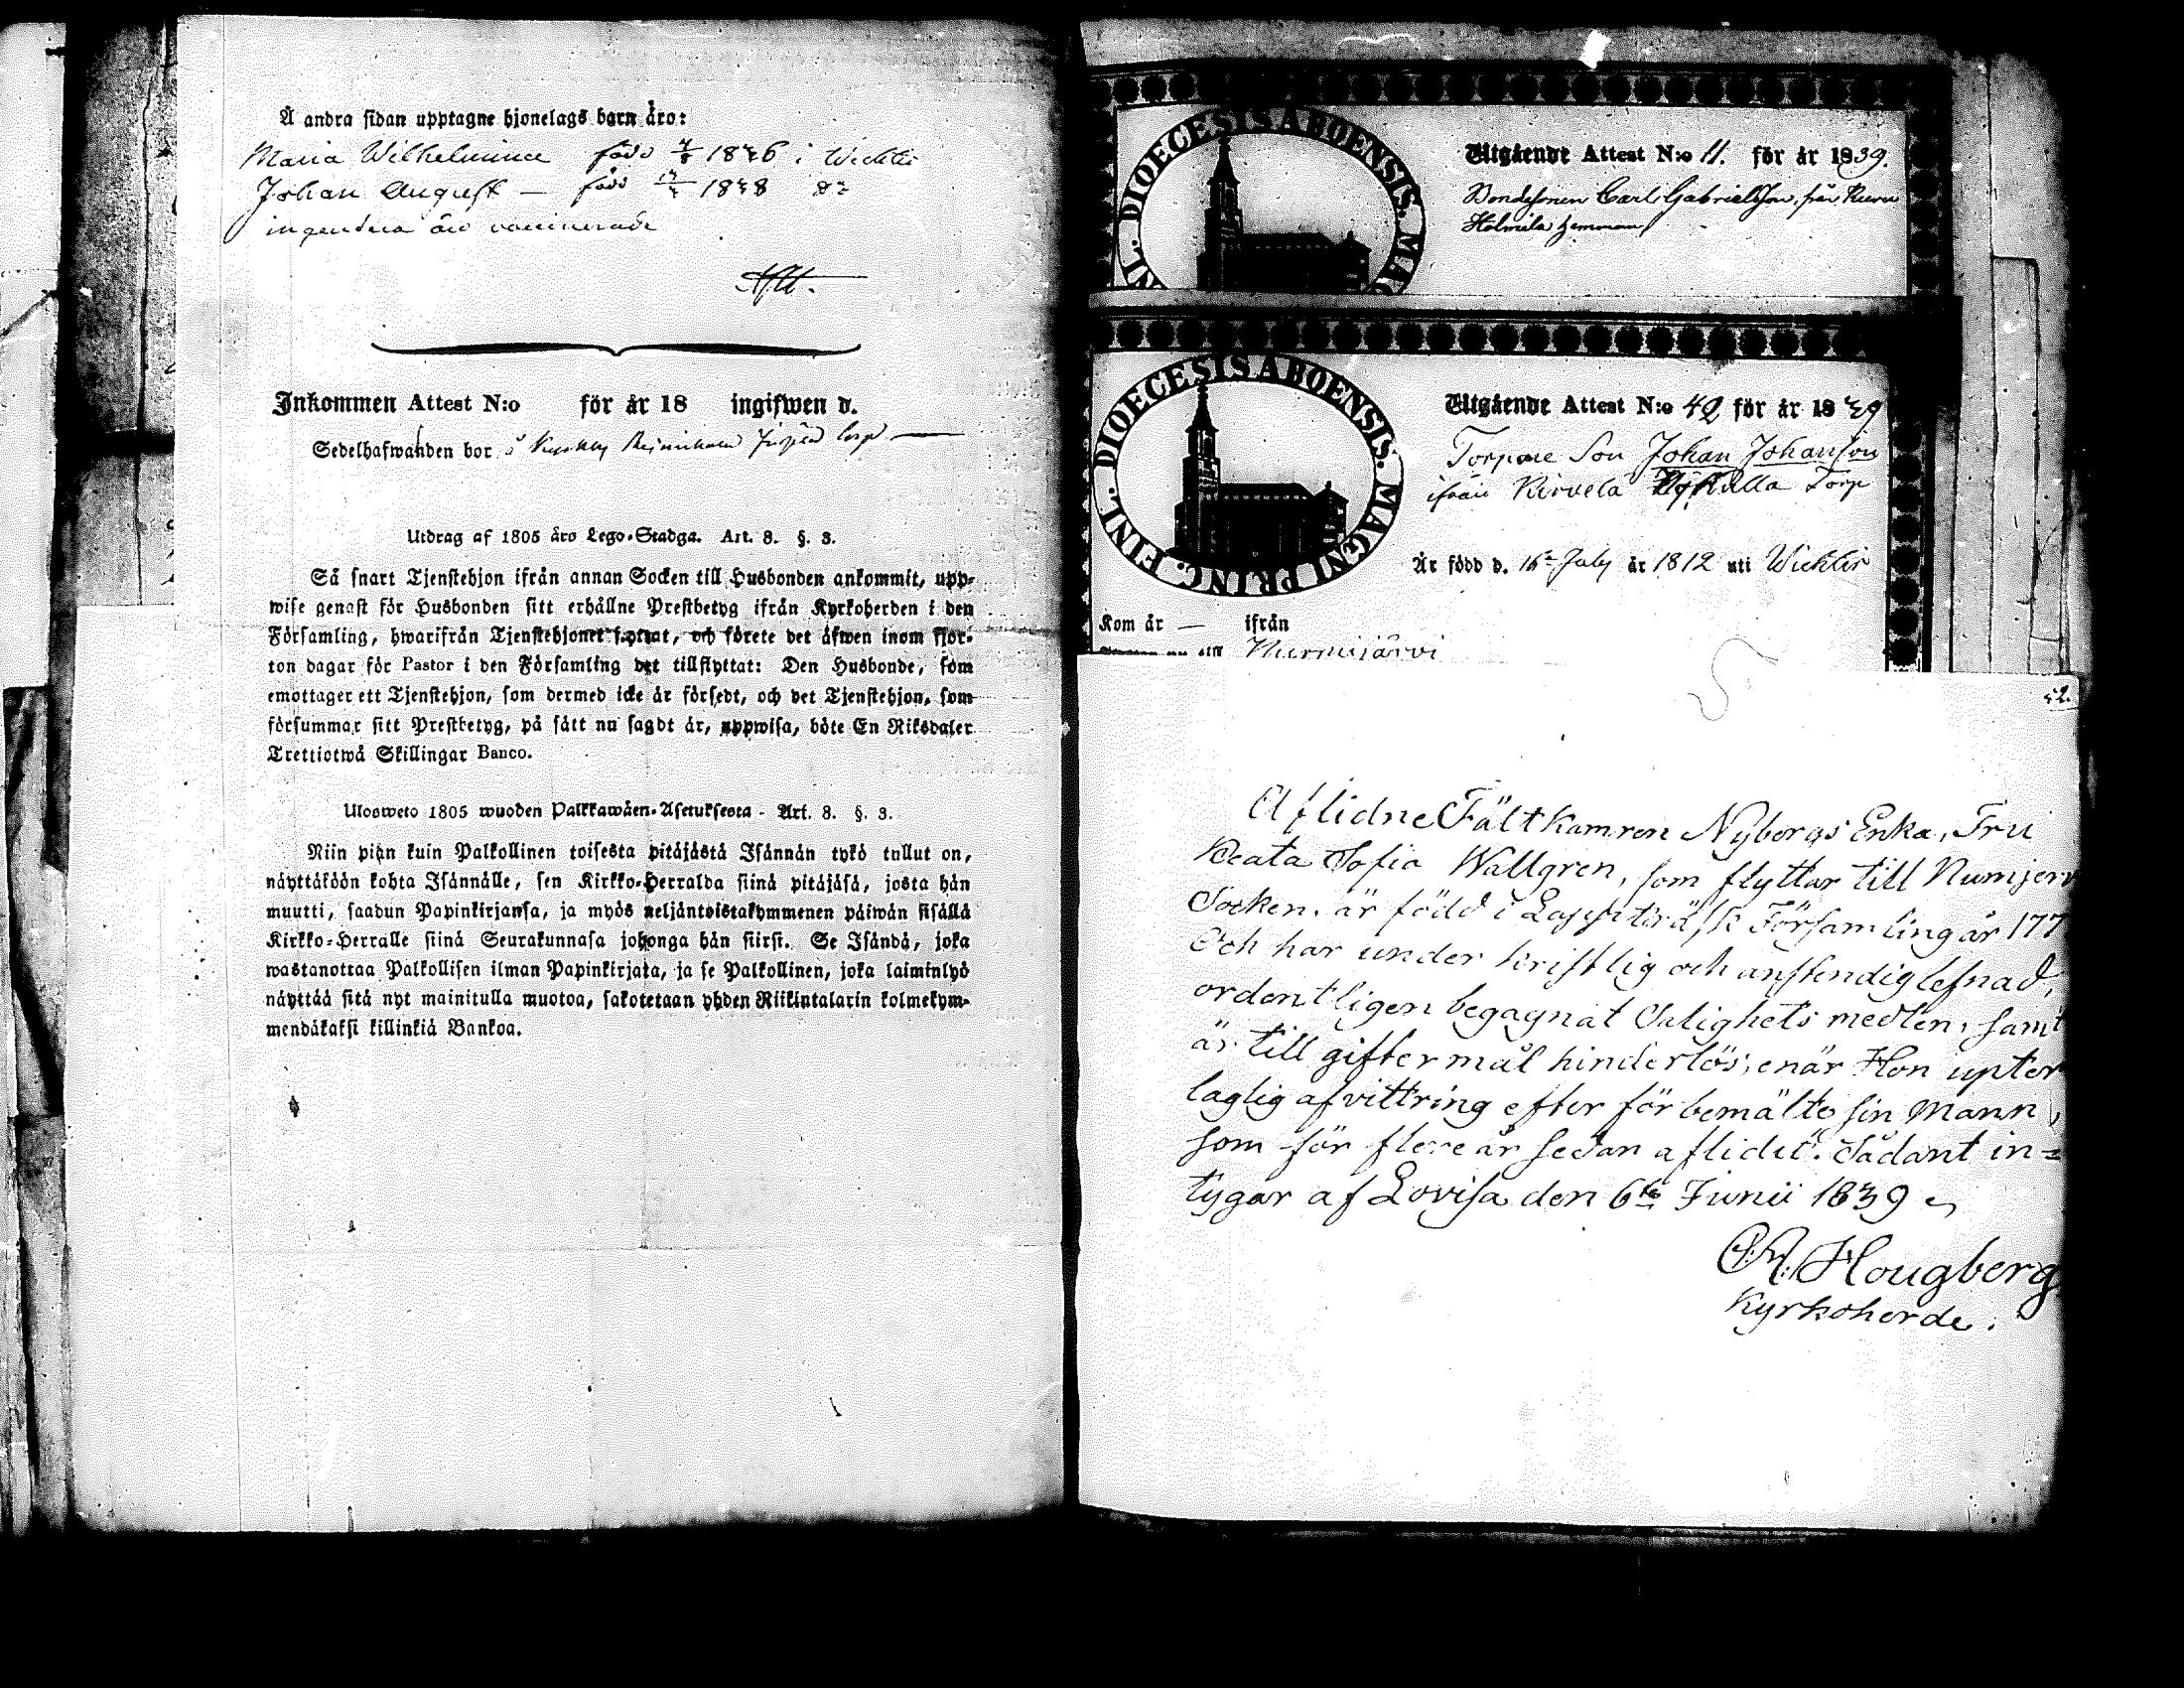 Å andra sidan upptagne hjonelags barn äro:
Maria Wilhelmina född 4/8 1836 i Wichtis
Johan August — född 1838 do
ingendera äro vaccinerade
Inkommen Attest N:o för år 18 ingifwen d.
Sedelhafwanden bor å
Utdrag af 1805 åro Lego-Stadga. Art. 8. §. 3.
Så snart Tjenstehjon ifrån annan Socken till Husbonden ankommit, upp-
wise genast för Husbonden sitt erhållne Prestbetyg ifrån Kyrkoherden i den
Församling, hwarifrån Tjenstehjonet flyttat, och förete det åfwen inom fjor-
ton dagar för Pastor i den Församling det tillflyttat: Den Husbonde, som
emottager ett Tjenstehjon, som dermed icke är försedt, och det Tjenstehjon, som
försummar sitt Prestbetyg, på sätt nu sagdt är, uppwisa, böte En Riksdaler
Trettiotwå Skillingar Banco.
Ulosweto 1805 wuoden Palkkawäen-Asetuksesta - Art. 8. §. 3.
Niin pian kuin Palkollinen toisesta pitäjästä Isännän tykö tullut on,
näyttäköön kohta Isännälle, sen Kirkko-Herralda siinä pitäjäsä, josta hän
muutti, saadun Papinkirjansa, ja myös neljäntoistakymmenen päiwän sisällä
Kirkko-Herralle siinä Seurakunnasa johonga hän siirsi. Se Isändä, joka
wastanottaa Palkollisen ilman Papinkirjata, ja se Palkollinen, joka laiminlyö
näyttää sitä nyt mainitulla muotoa, sakotetaan yhden Riikintalarin kolmekym-
mendäkaksi killinkiä Bankoa.
DIOECESIS ABOENSIS. MAG
NL.
Utgående Attest N:o 11. för år 1839.
Bondesonen Carl Gabrielsson, från
Holmila hemman
DIOECESIS ABOENSIS. MAGNI PRINC. FINL.
Utgående Attest N:o 42 för år 1839
Torpare Son Johan Johansson
ifrån Kirvela Torp
Är född d. 16de July år 1812 uti Wichtis
Kom år — ifrån
till Nurmijärvi
52.
Aflidne Fältkamreren Nyborgs Enka, Fru
Beata Sofia Wallgren, som flyttar till Numjerv
Socken, är född i Lappträsk Församling år 177
Och har under kristlig och anständig lefnad,
ordentligen begagnat Salighets medlen, samt
är till giftermål hinderlös, enär Hon upter
laglig afvittring efter förbemälte sin Mann,
som för flere år sedan aflidit. Sådant in=
tygar af Lovisa den 6te Junii 1839
Hougberg
Kyrkoherde.